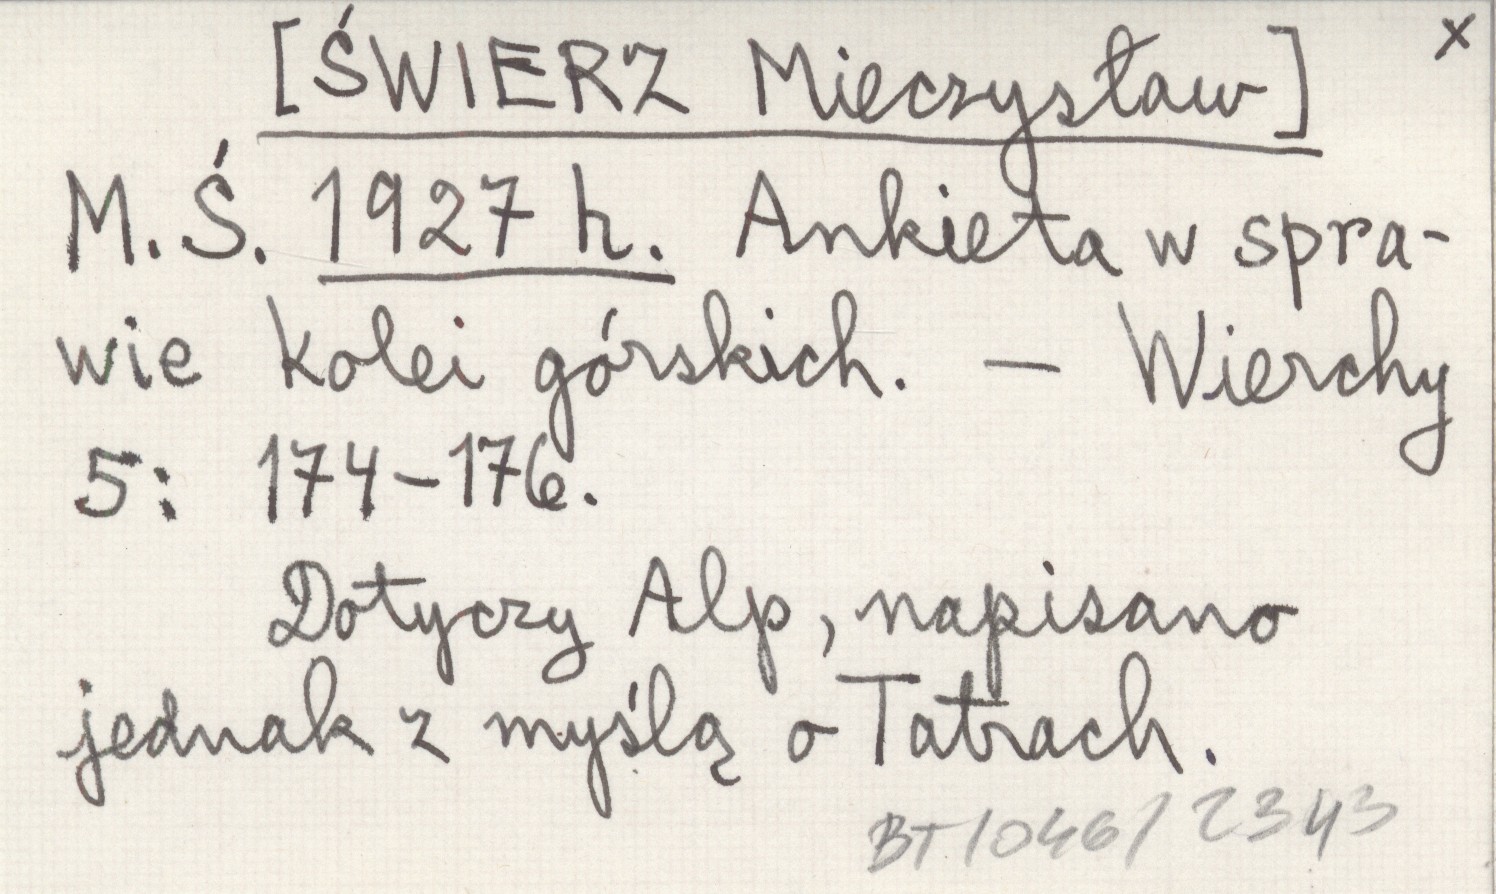 [ŚWIERZ Mieczysław] x
M. Ś. 1927 h. Ankieta w spra-
wie kolei górskich. — Wierchy
5: 174-176.
Dotyczy Alp, napisano
jednak z myślą o Tatrach.
BT/046/2343